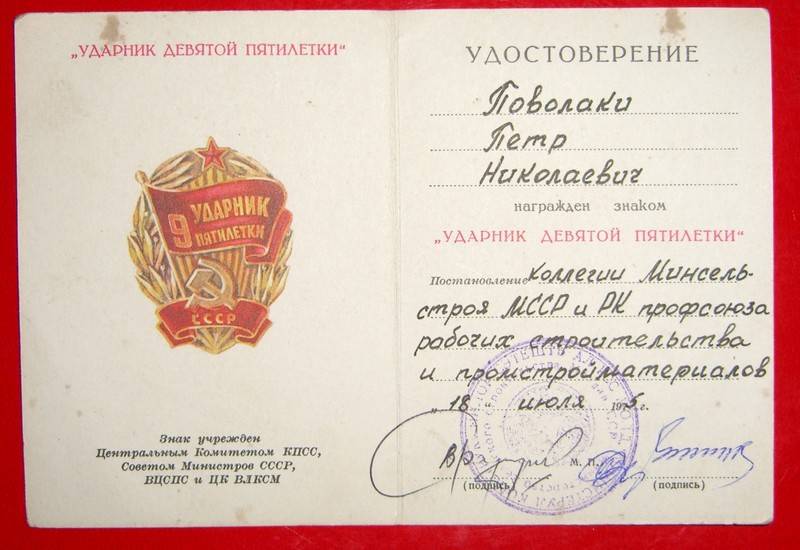 „УДАРНИК ДЕВЯТОЙ ПЯТИЛЕТКИ"
9 УДАРНИК
ПЯТИЛЕТКИ
СССР
Знак учрежден
Центральным Комитетом КПСС,
Советом Министров СССР,
ВЦСПС и ЦК ВЛКСМ
УДОСТОВЕРЕНИЕ
Поволаки
Петр
Николаевич
награжден знаком
„УДАРНИК ДЕВЯТОЙ ПЯТИЛЕТКИ"
Постановление коллегии Минсель-
строя МССР и РК профсоюза
рабочих строительства
и промстройматериалов
„18" июля 1975 г.
М. П.
(подпись) (подпись)